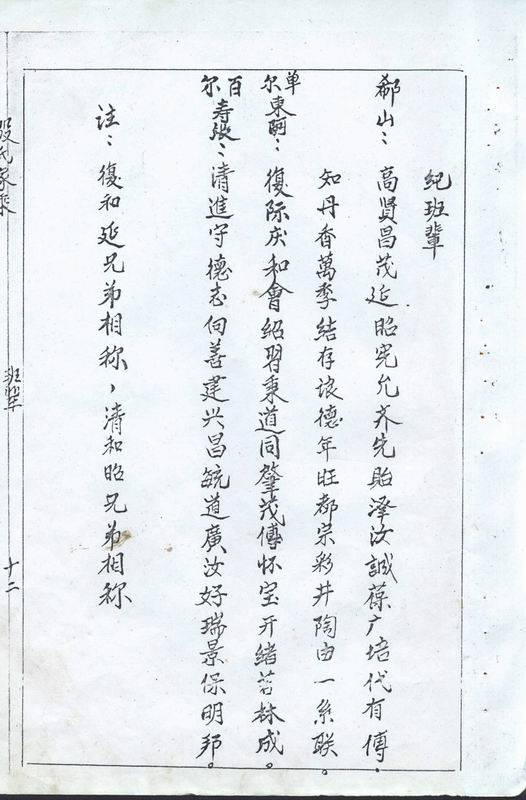 纪班輩
郗山：高賢昌茂延昭宪允齐先貽澤汝誠葆广培代有傳.
知丹香萬季结存德年旺都宗彩井陶由一系联。
单尔東嗣：復际庆和會紹習秉道同肇茂傳怀宝开緒若林成。
百尔寿张：清進守德志向善建兴昌毓道廣汝好瑞景保明邦。
註：復和延兄弟相称，清和昭兄弟相称
氏家乘
班輩
十二